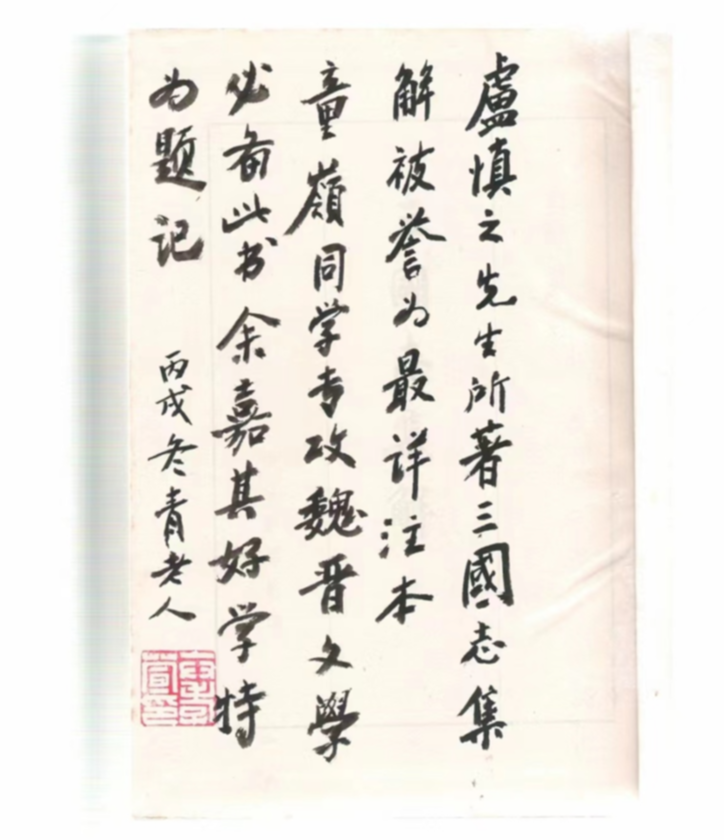 盧慎之先生所著三國志集
解被誉为最详注本
童嶺同学专攻魏晋文學
必备此书余嘉其好学特
为题记
丙戌冬青老人